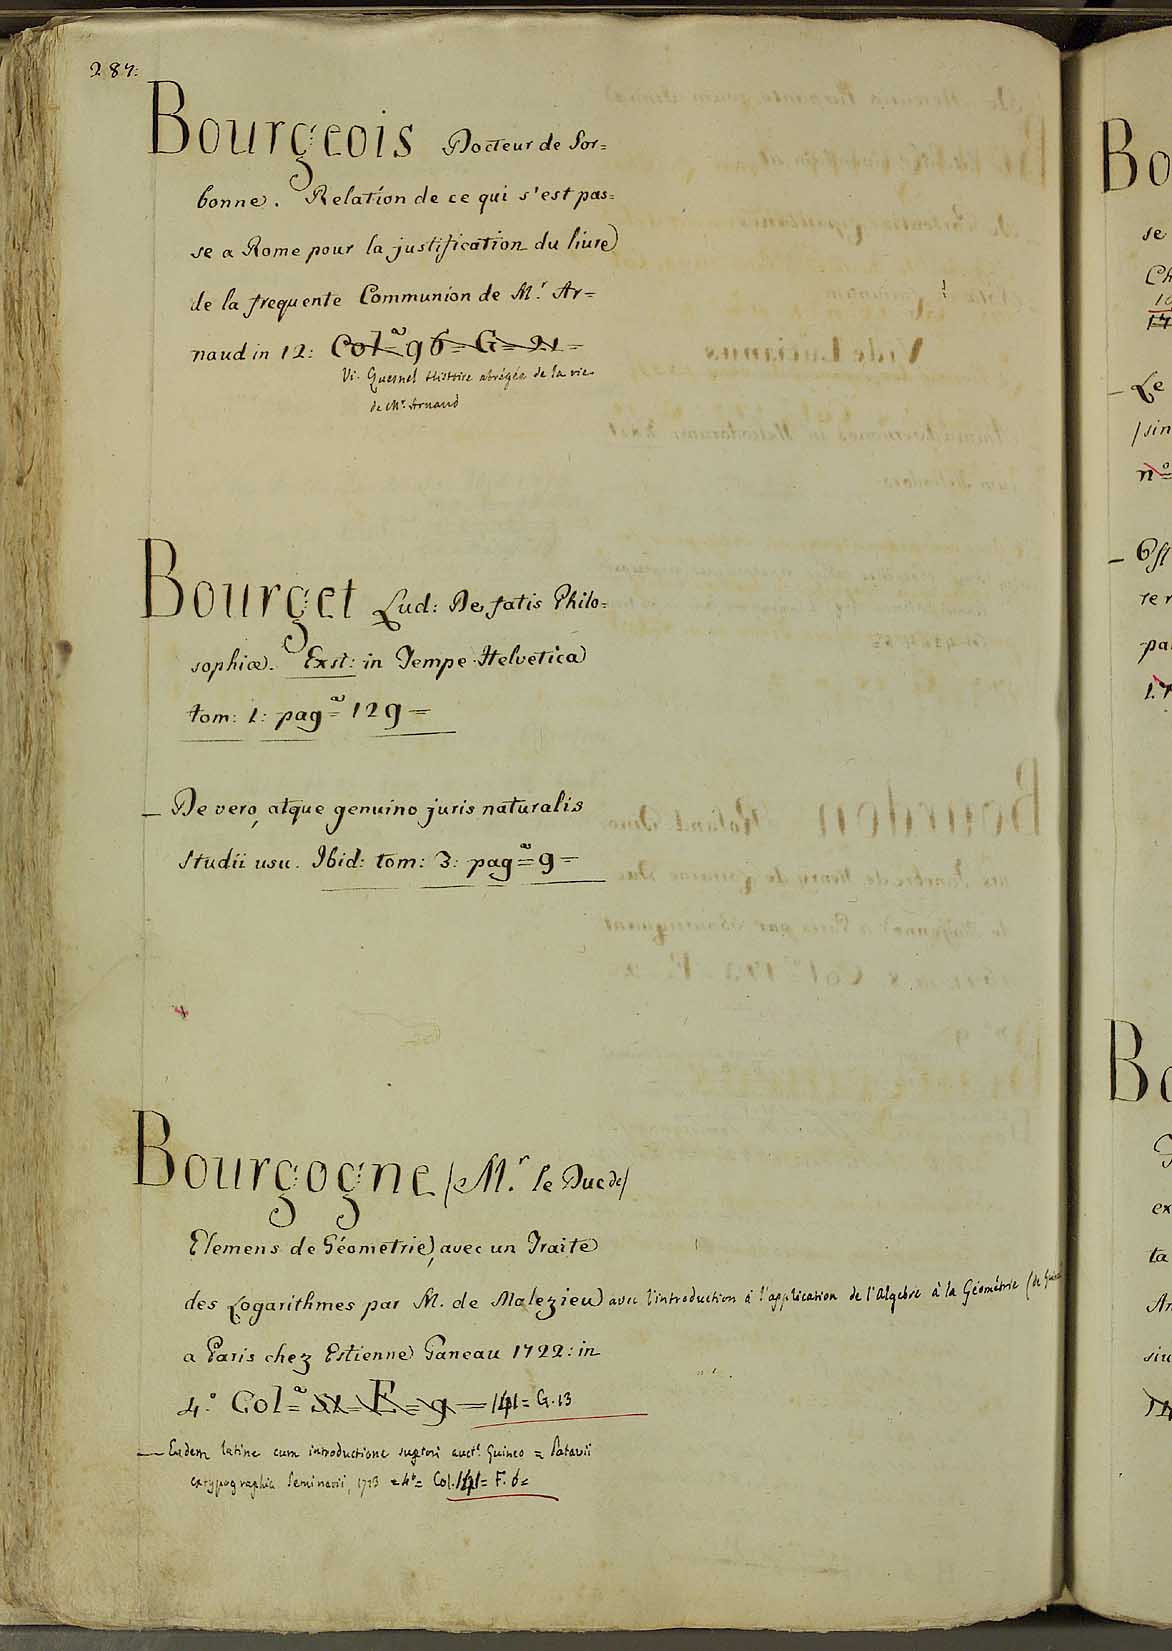 287:
Bourgeois Docteur de Sor=
bonne. Relation de ce qui s'est pas=
se a Rome pour la justification du liure
de la frequente Communion de M.r Ar=
naud in 12: Col.a 96= G= 21=
Vi. Quesnel Histoire abrégée de la vie
de Mr. Arnaud
Bourget Lud: De fatis Philo=
sophiæ. Exst: in Tempe Helvetica
tom: 1: pag.a 129=
– De vero, atque genuino juris naturalis
studii usu. Ibid: tom: 3: pag.a 9=
Bourgogne (M.r le Duc de)
Elemens de Géometrie, avec un Traite
des Logarithmes par M. de Malezieu avec l'introduction à l'application de l'Algebre à la Géométrie (de
a Paris chez Estienne Ganeau 1722: in
4.o Col.a E= 9= 141= G. 13
– Eadem latine cum introductione auct. Guineo = Patavii
ex typographia Seminarii, 1713 = 4o= Col. 141= F. 6=
Bo
se
Ch
Le
/sin
no
rer
pa
Bo
ex
ta
Ar